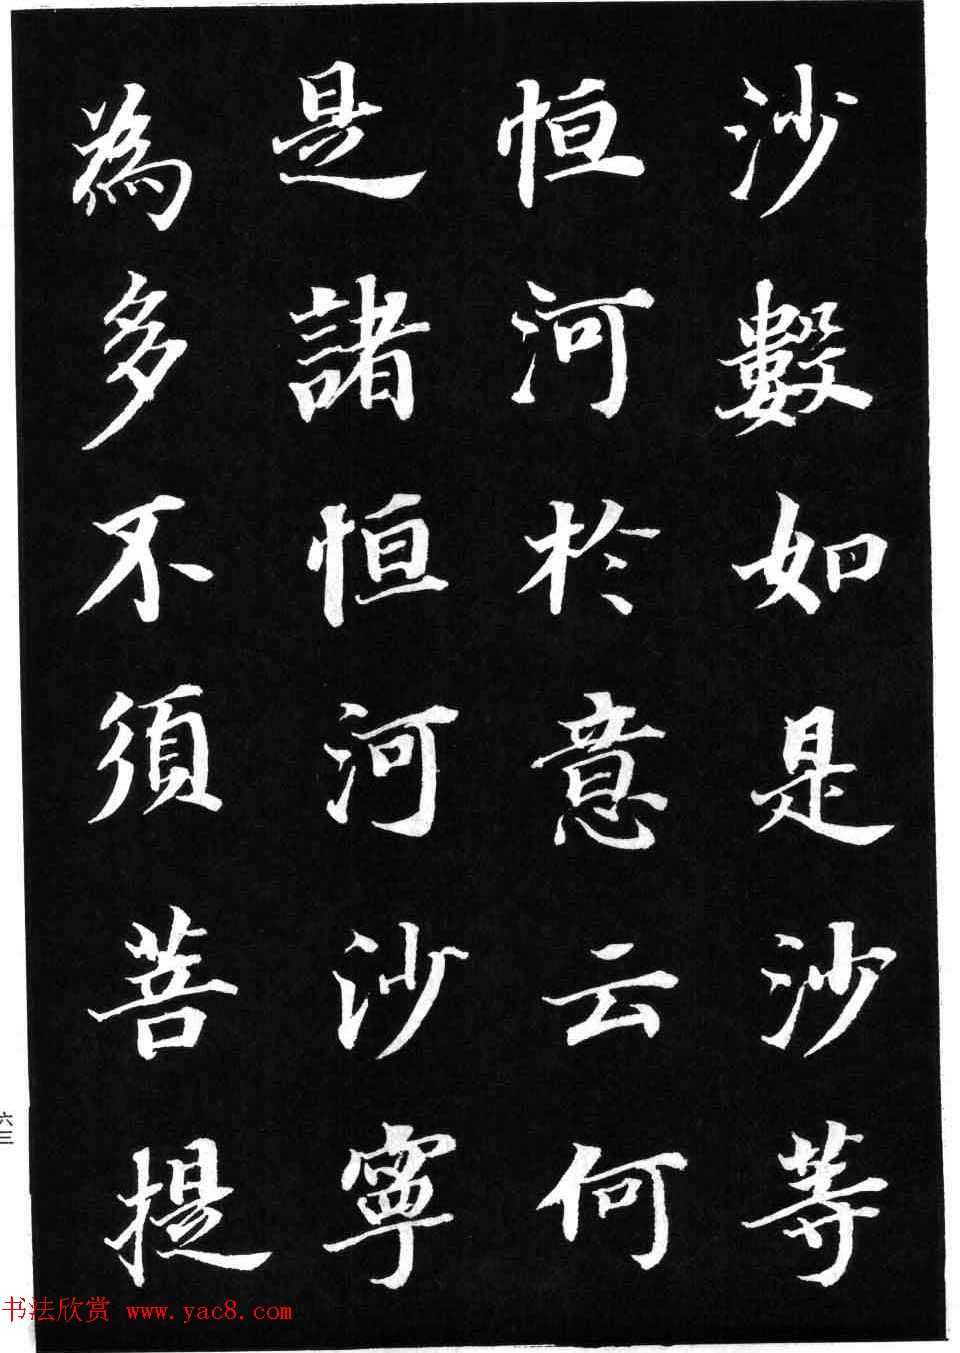 沙數如是沙等
恒河於意云何
是諸恒河沙寧
為多不須菩提
六三
书法欣赏 www.yac8.com